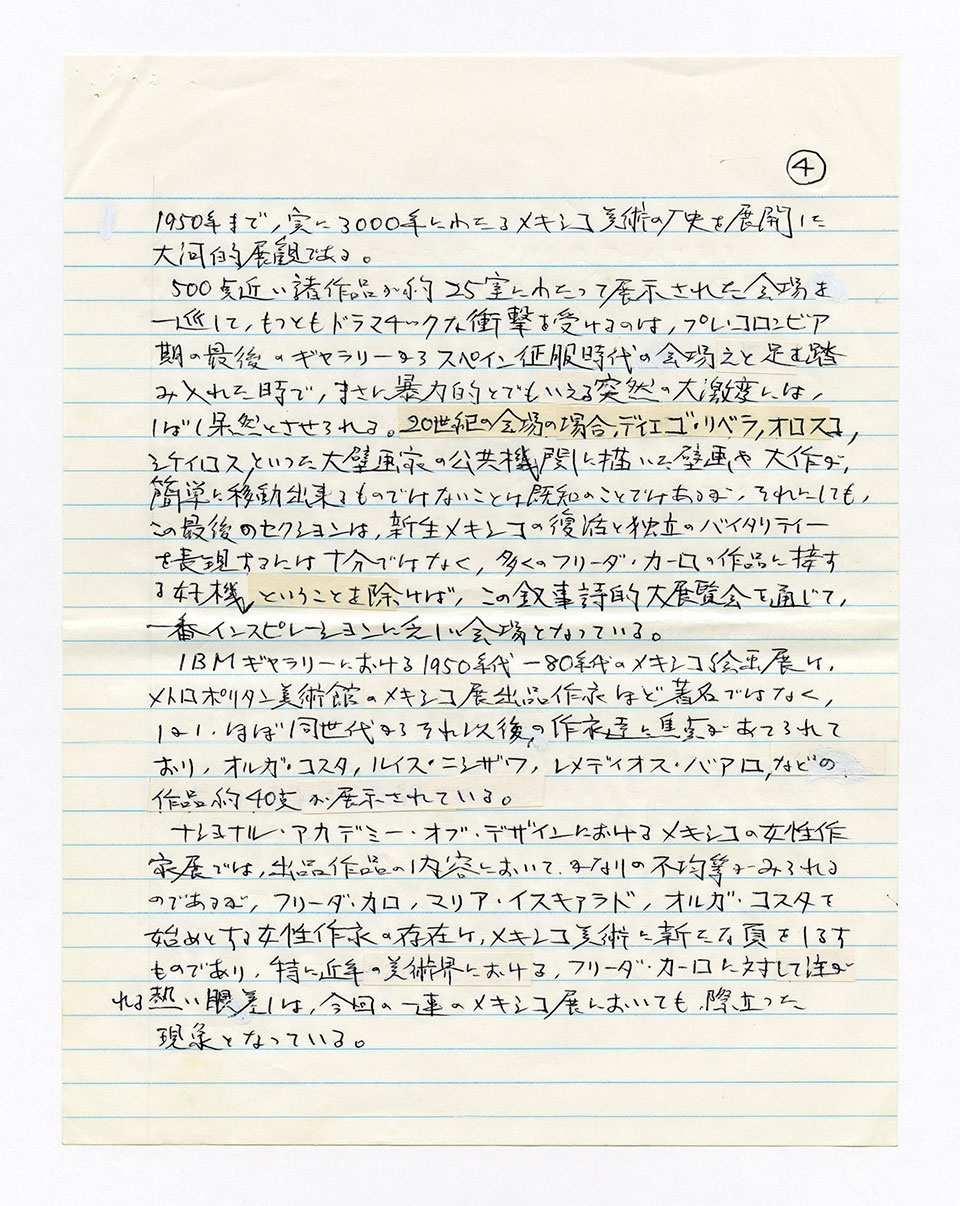 ④
1950年まで，実に3000年にわたるメキシコ美術の歴史を展開した
大河的展観である。
500点近い諸作品が約25室にわたって展示された会場を
一巡して，もっともドラマチックな衝撃を受けるのは，プレ・コロンビア
期の最後のギャラリーからスペイン征服時代の会場えと足を踏
み入れた時で，まさに暴力的とでもいえる突然の大激変には，
しばし呆然とさせられる。20世紀の会場の場合，ディエゴ・リベラ，オロスコ，
シケイロス，といった大壁画家の公共機関に描いた壁画や大作が，
簡単に移動出来るものではないことは既知のことではあるが，それにしても，
この最後のセクションは，新生メキシコの復活と独立のバイタリティー
を表現するには十分ではなく，多くのフリーダ・カーロの作品に接す
る好機，ということを除けば，この叙事詩的大展覧会を通じて，
一番インスピレーションに乏しい会場となっている。
IBMギャラリーにおける1950年代－80年代のメキシコ絵画展は，
メトロポリタン美術館のメキシコ展出品作家ほど著名ではなく，
しかし，ほぼ同世代からそれ以後の作家達に焦点があてられて
おり，オルガ・コスタ，ルイス・ニシザワ，レメディオス・バアロ，などの
作品約40点が展示されている。
ナショナル・アカデミー・オブ・デザインにおけるメキシコの女性作
家展では，出品作品の内容において，かなりの不均等がみられる
のであるが，フリーダ・カロ，マリア・イスキアラド，オルガ・コスタを
始めとする女性作家の存在は，メキシコ美術に新たな頁をしるす
ものであり，特に近年の美術界における，フリーダ・カーロに対して注が
れる熱い眼差しは，今回の一連のメキシコ展においても，際立った
現象となっている。